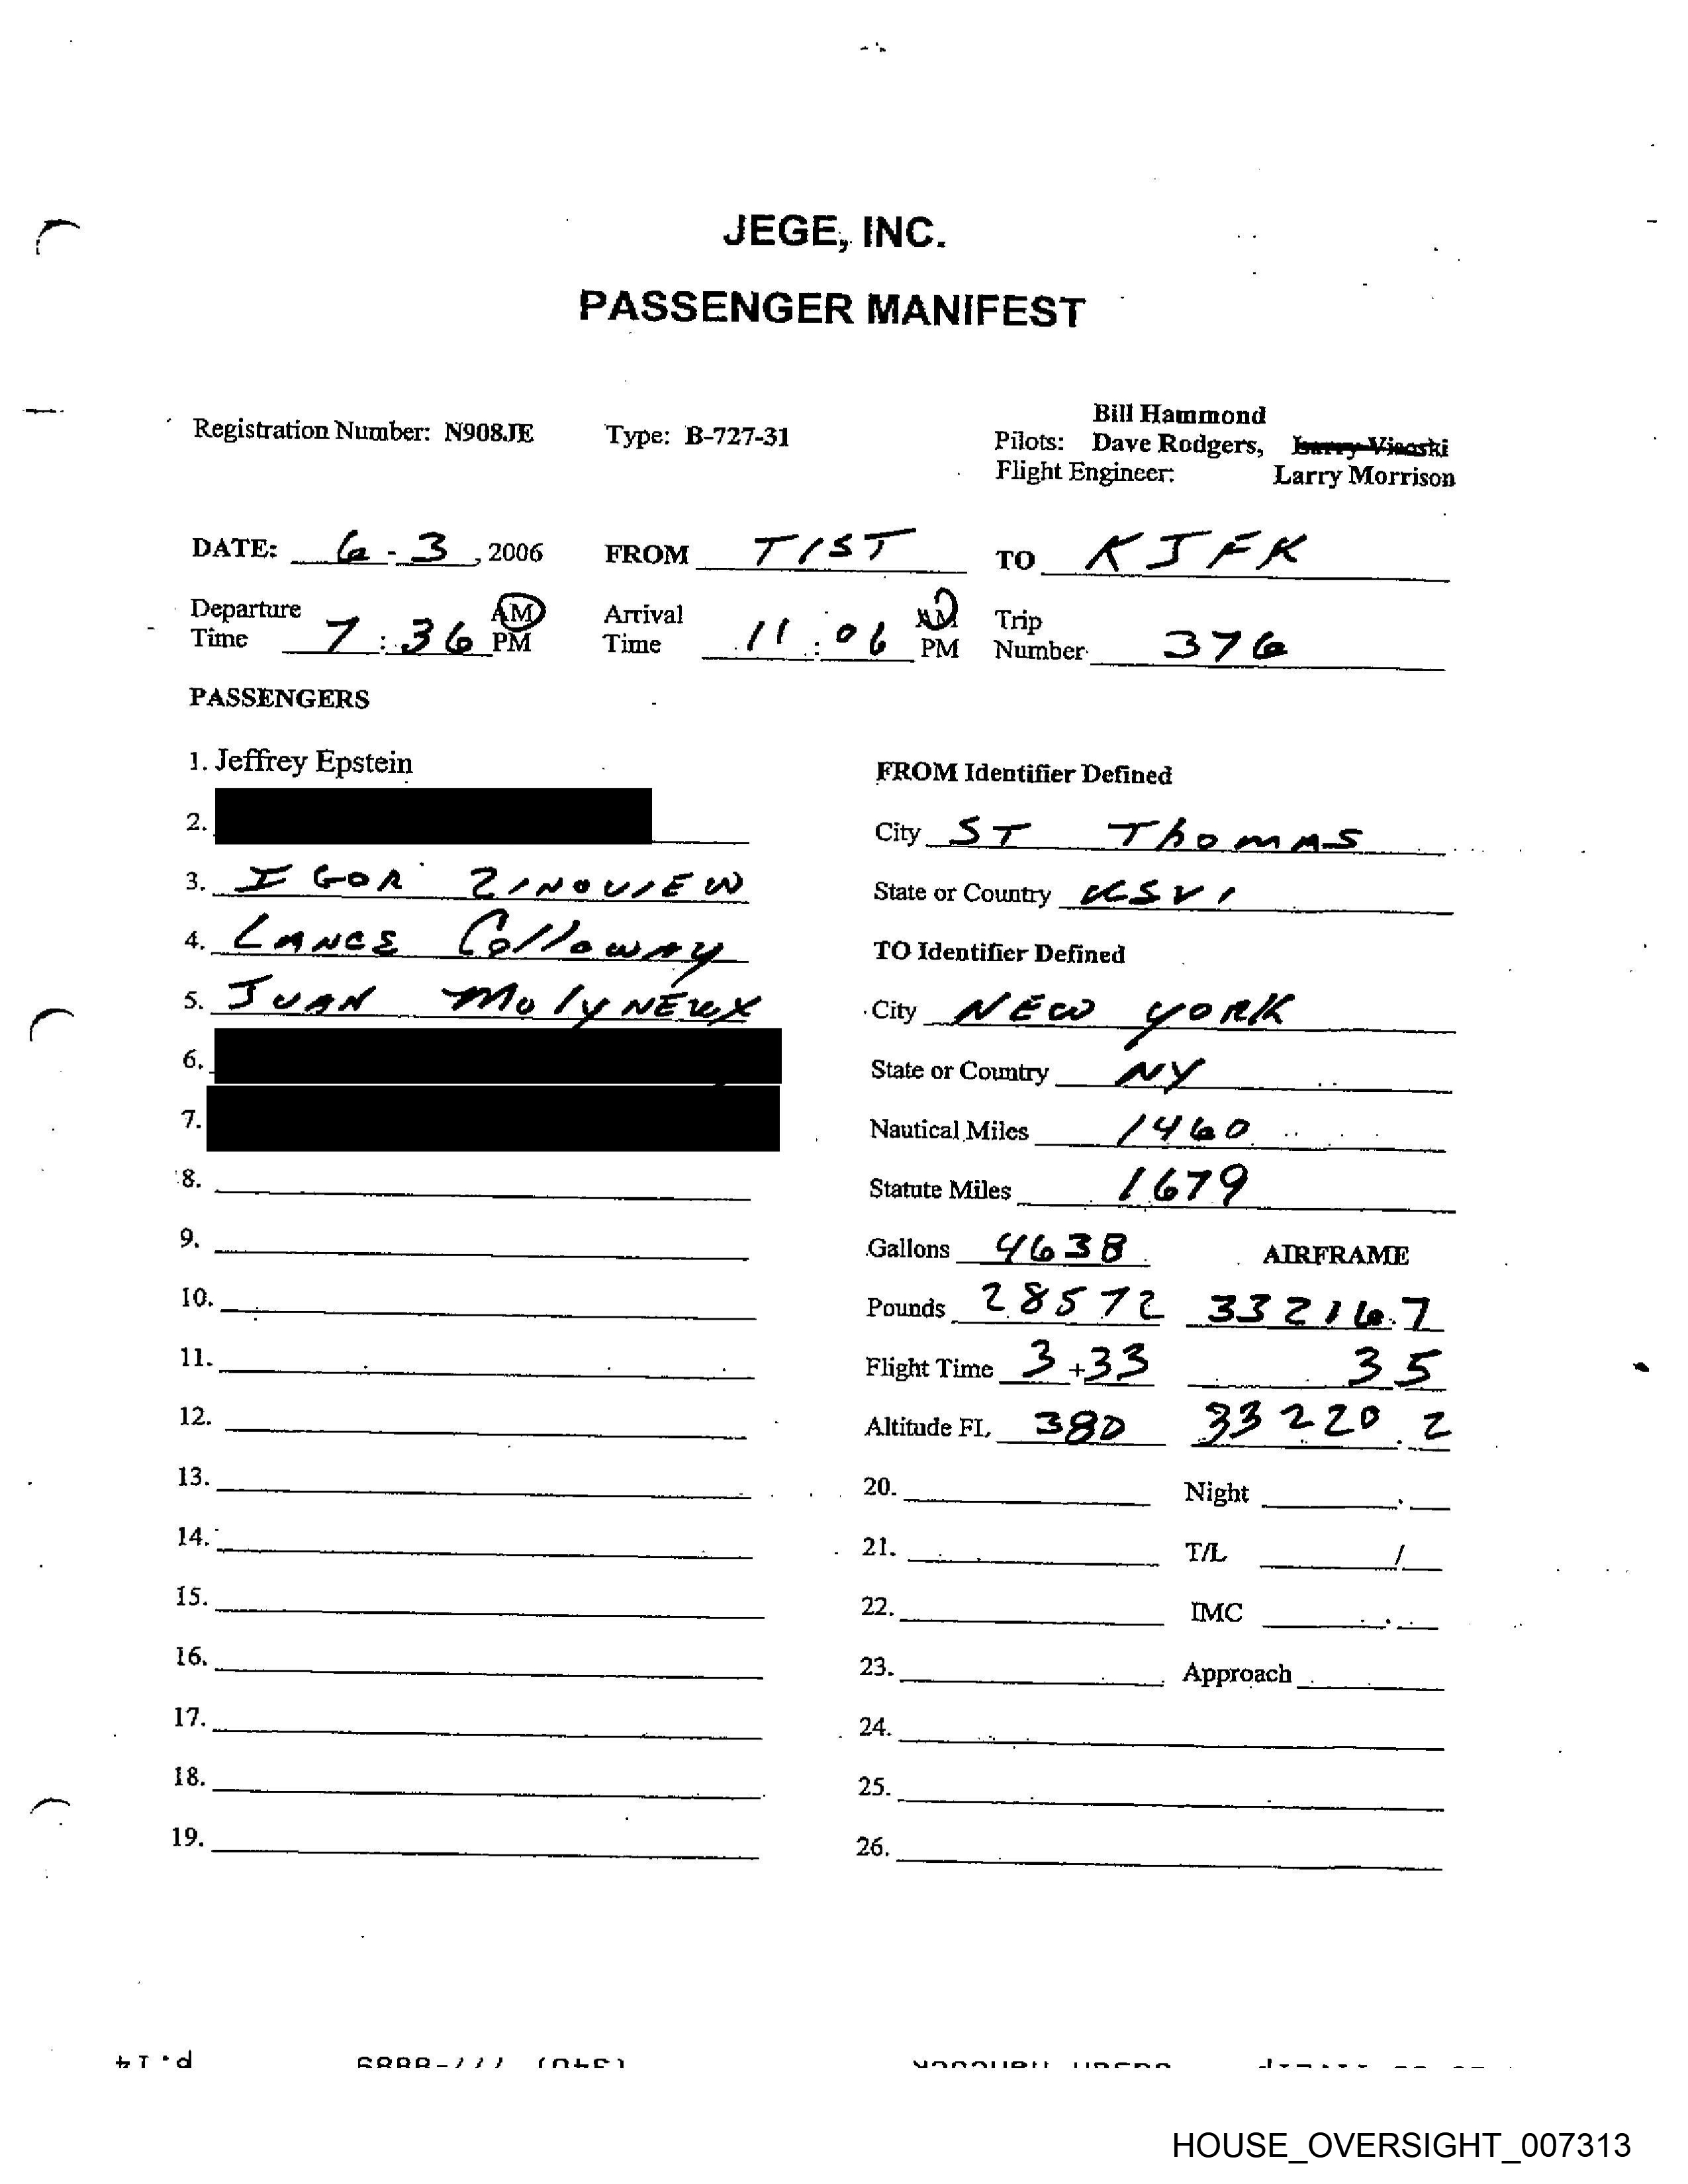 JEGE, INC.
PASSENGER MANIFEST
Registration Number: N908JE Type: B-727-31
Bill Hammond
Pilots: Dave Rodgers, Larry Visoski
Flight Engineer: Larry Morrison
DATE: 6 - 3, 2006 FROM TIST TO KJFK
Departure Time 7:36 AM PM Arrival Time 11:06 AM PM Trip Number 376
PASSENGERS
1. Jeffrey Epstein
2.
3. IGOR ZINOVIEW
4. LANCE Colloway
5. JUAN MolyNEUX
6.
7.
8.
9.
10.
11.
12.
13.
14.
15.
16.
17.
18.
19.
FROM Identifier Defined
City ST Thomas
State or Country USVI
TO Identifier Defined
City NEW YORK
State or Country NY
Nautical Miles 1460
Statute Miles 1679
Gallons 4638 AIRFRAME
Pounds 28572 33216.7
Flight Time 3+33 3.5
Altitude FL 380 33220.2
20. Night
21. T/L /
22. IMC
23. Approach
24.
25.
26.
p.14
HOUSE_OVERSIGHT_007313